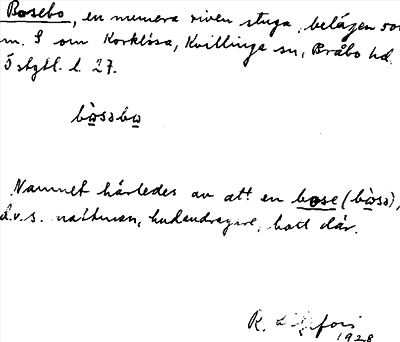 Bosebo, en numera riven stuga, belägen 500
m. S om Korklösa, Kvillinge sn, Bråbo hd.
Östgtl. l. 27.
bòssbo
Namnet härledes av att en bose (bòss),
d.v.s. nattman, hudavdragare, bott där.
K. Liljefors
1928